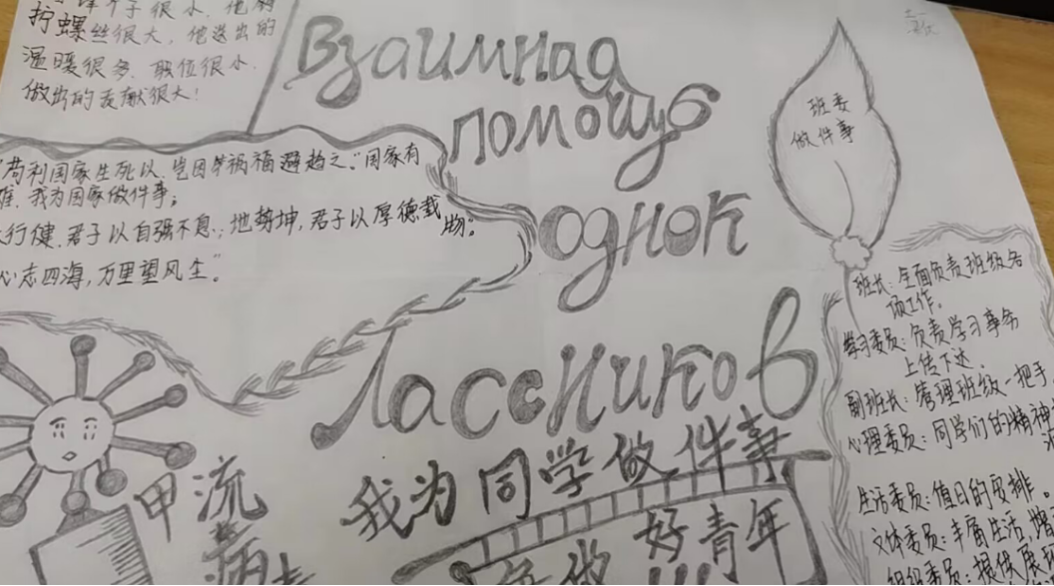 个子很小
拧螺丝很大，他送出的
温暖很多，职位很小，
做出的贡献很大！
Взаимная
помощь
однок
лассников
班委
做件事
苟利国家生死以，岂因祸福避趋之。"国家有
难，我为国家做件事；
行健，君子以自强不息；地势坤，君子以厚德载
物。
心志四海，万里望风尘"
班长：全面负责班级各
项工作。
学习委员：负责学习事务
上传下达
副班长：管理班级一把手
心理委员：同学们的精神
生活委员：值日的安排。
文体委员：丰富生活，增
组织委员：提供展
我为同学做件事
好青年
做
甲流
病毒